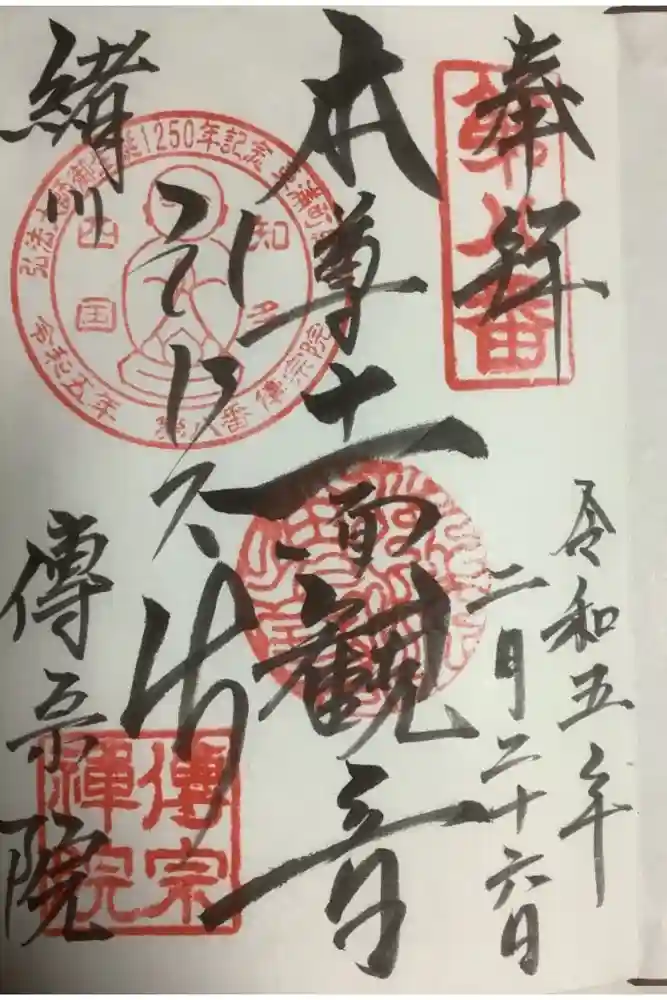 奉拝
第八番
令和五年
二月二十六日
本尊十一面観音
弘法大師
緒川
傳宗院
弘法大師御生誕1250年記念 東浦町
知多
四国
令和五年 第八番 傳宗院
傳宗
禪院